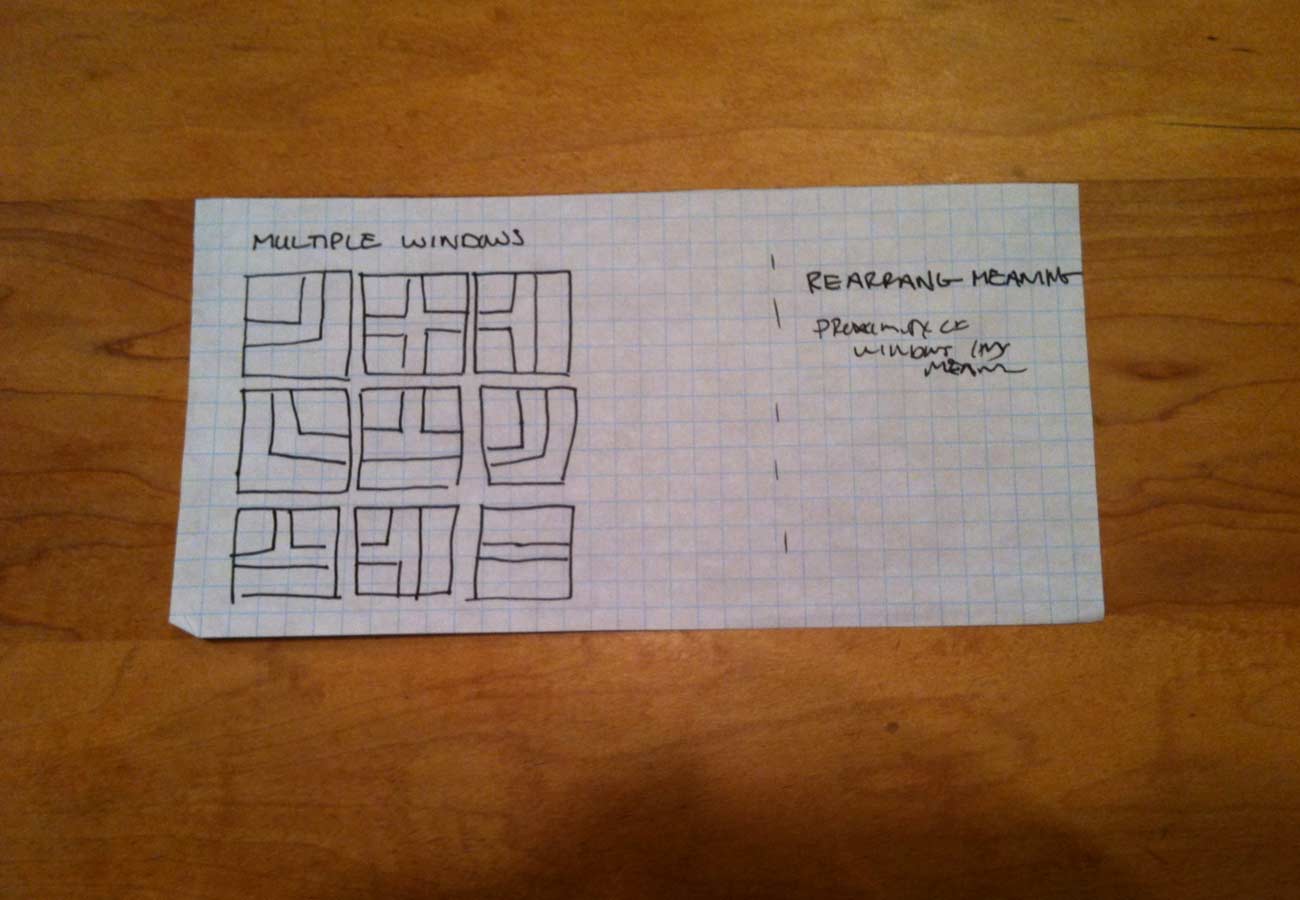 MULTIPLE WINDOWS
REARRANG MEANING
PROXIMITY OF
WINDOWS
MEANING